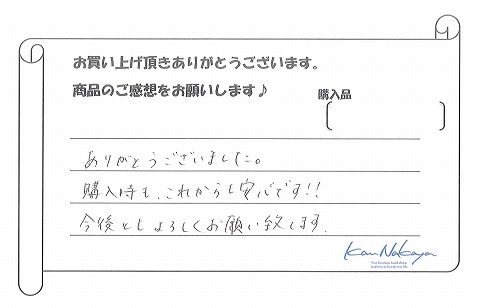 お買い上げ頂きありがとうございます。
商品のご感想をお願いします♪
購入品
ありがとうございました。
購入時も、これからも安心です!!
今後ともよろしくお願い致します.
Kan Nakaya